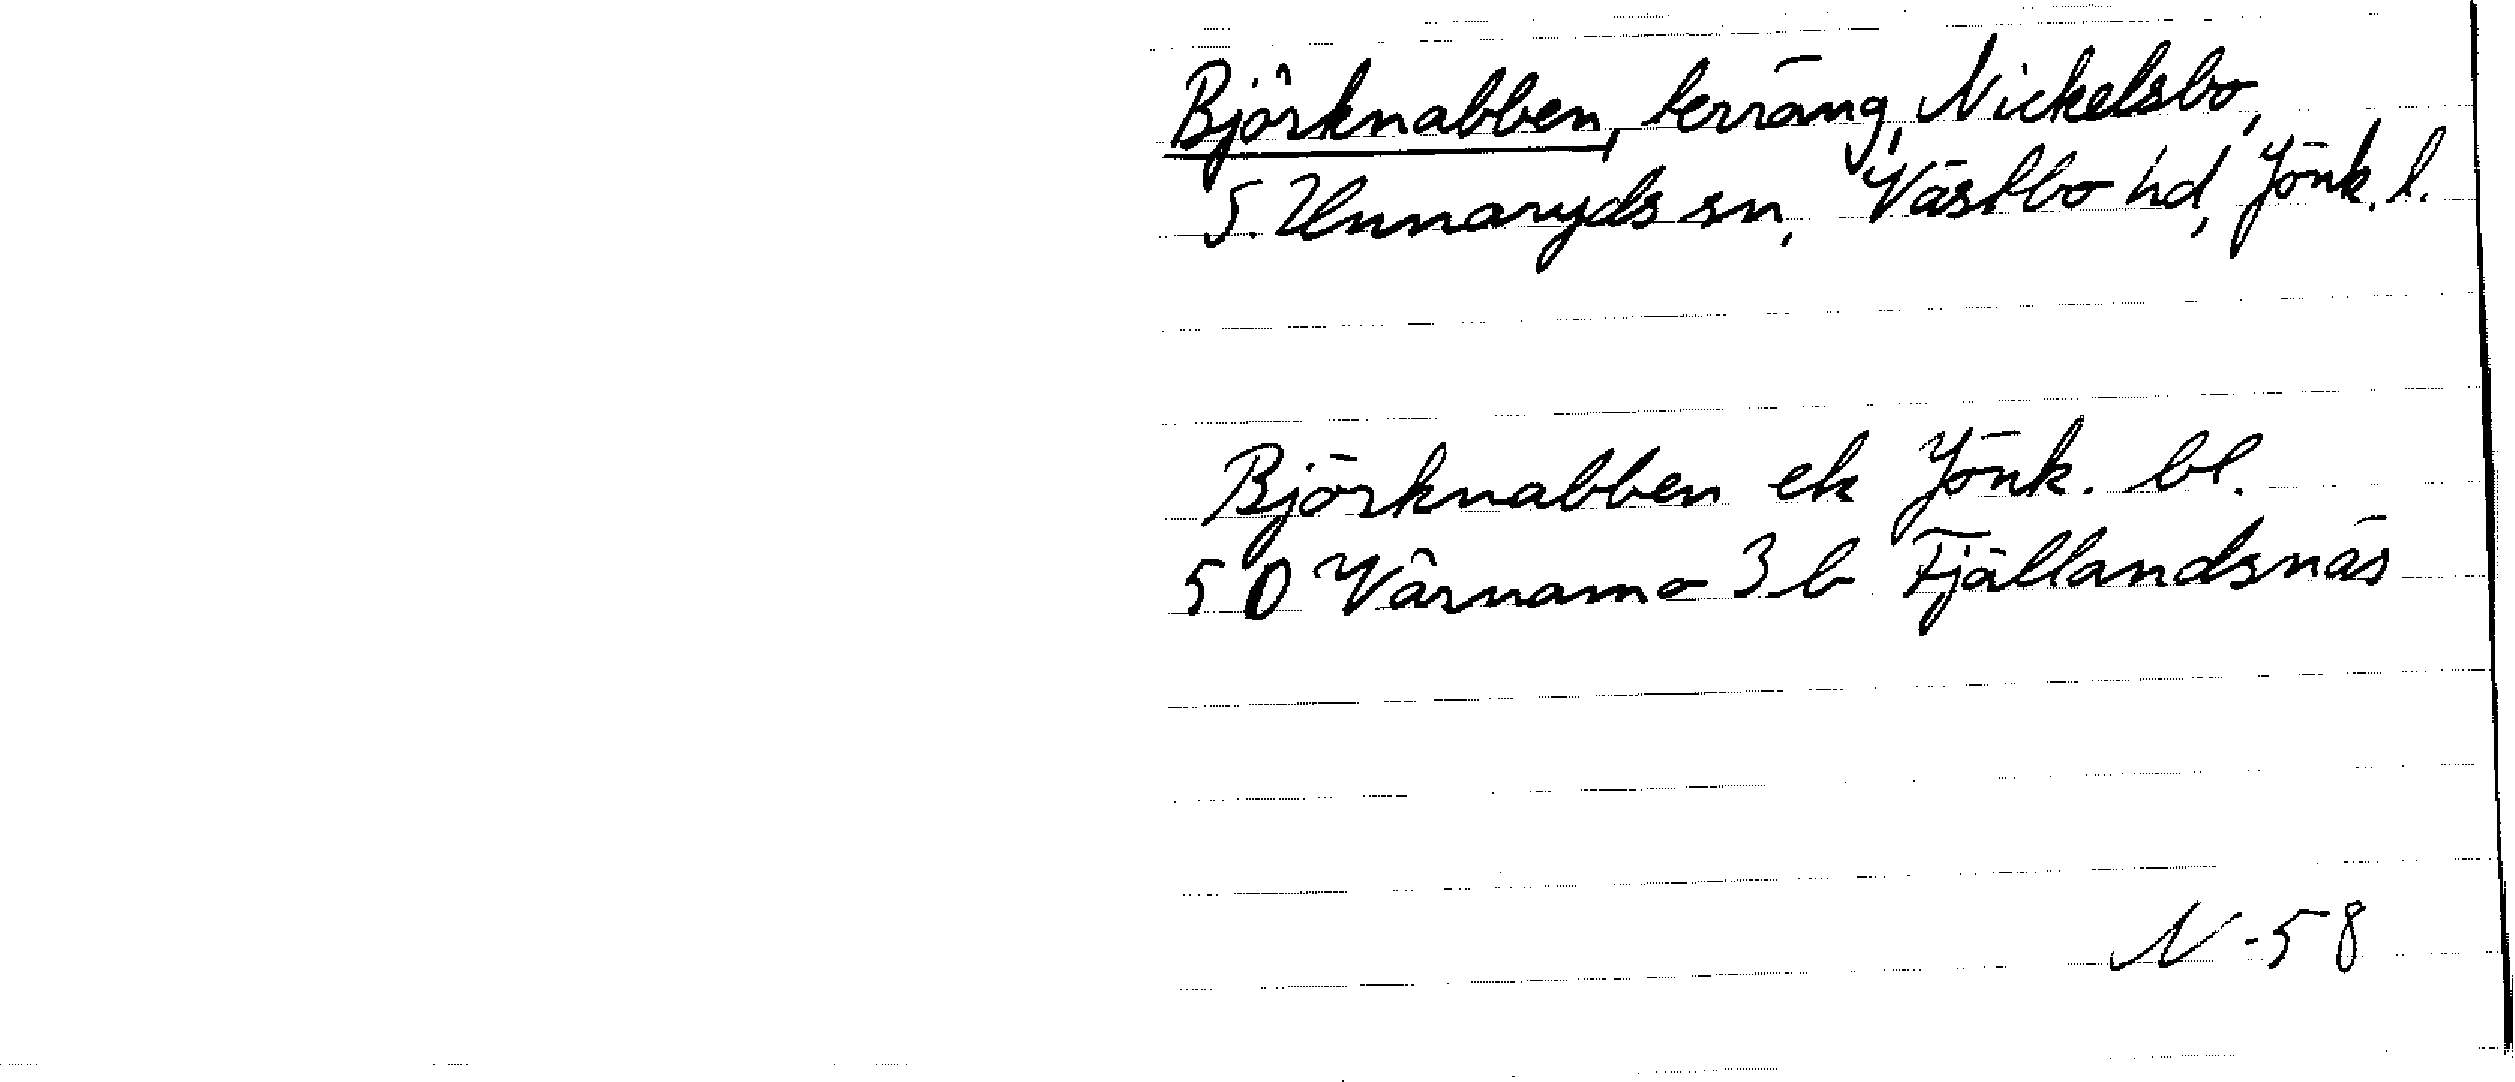 Björknabben, terräng, Nickelsbo,
S. Unnaryds sn, Västbo hd, Jönk. l.
Björknabben ek Jönk. bl.
5 D Värnamo 3 b Fjällandsnäs
N-58